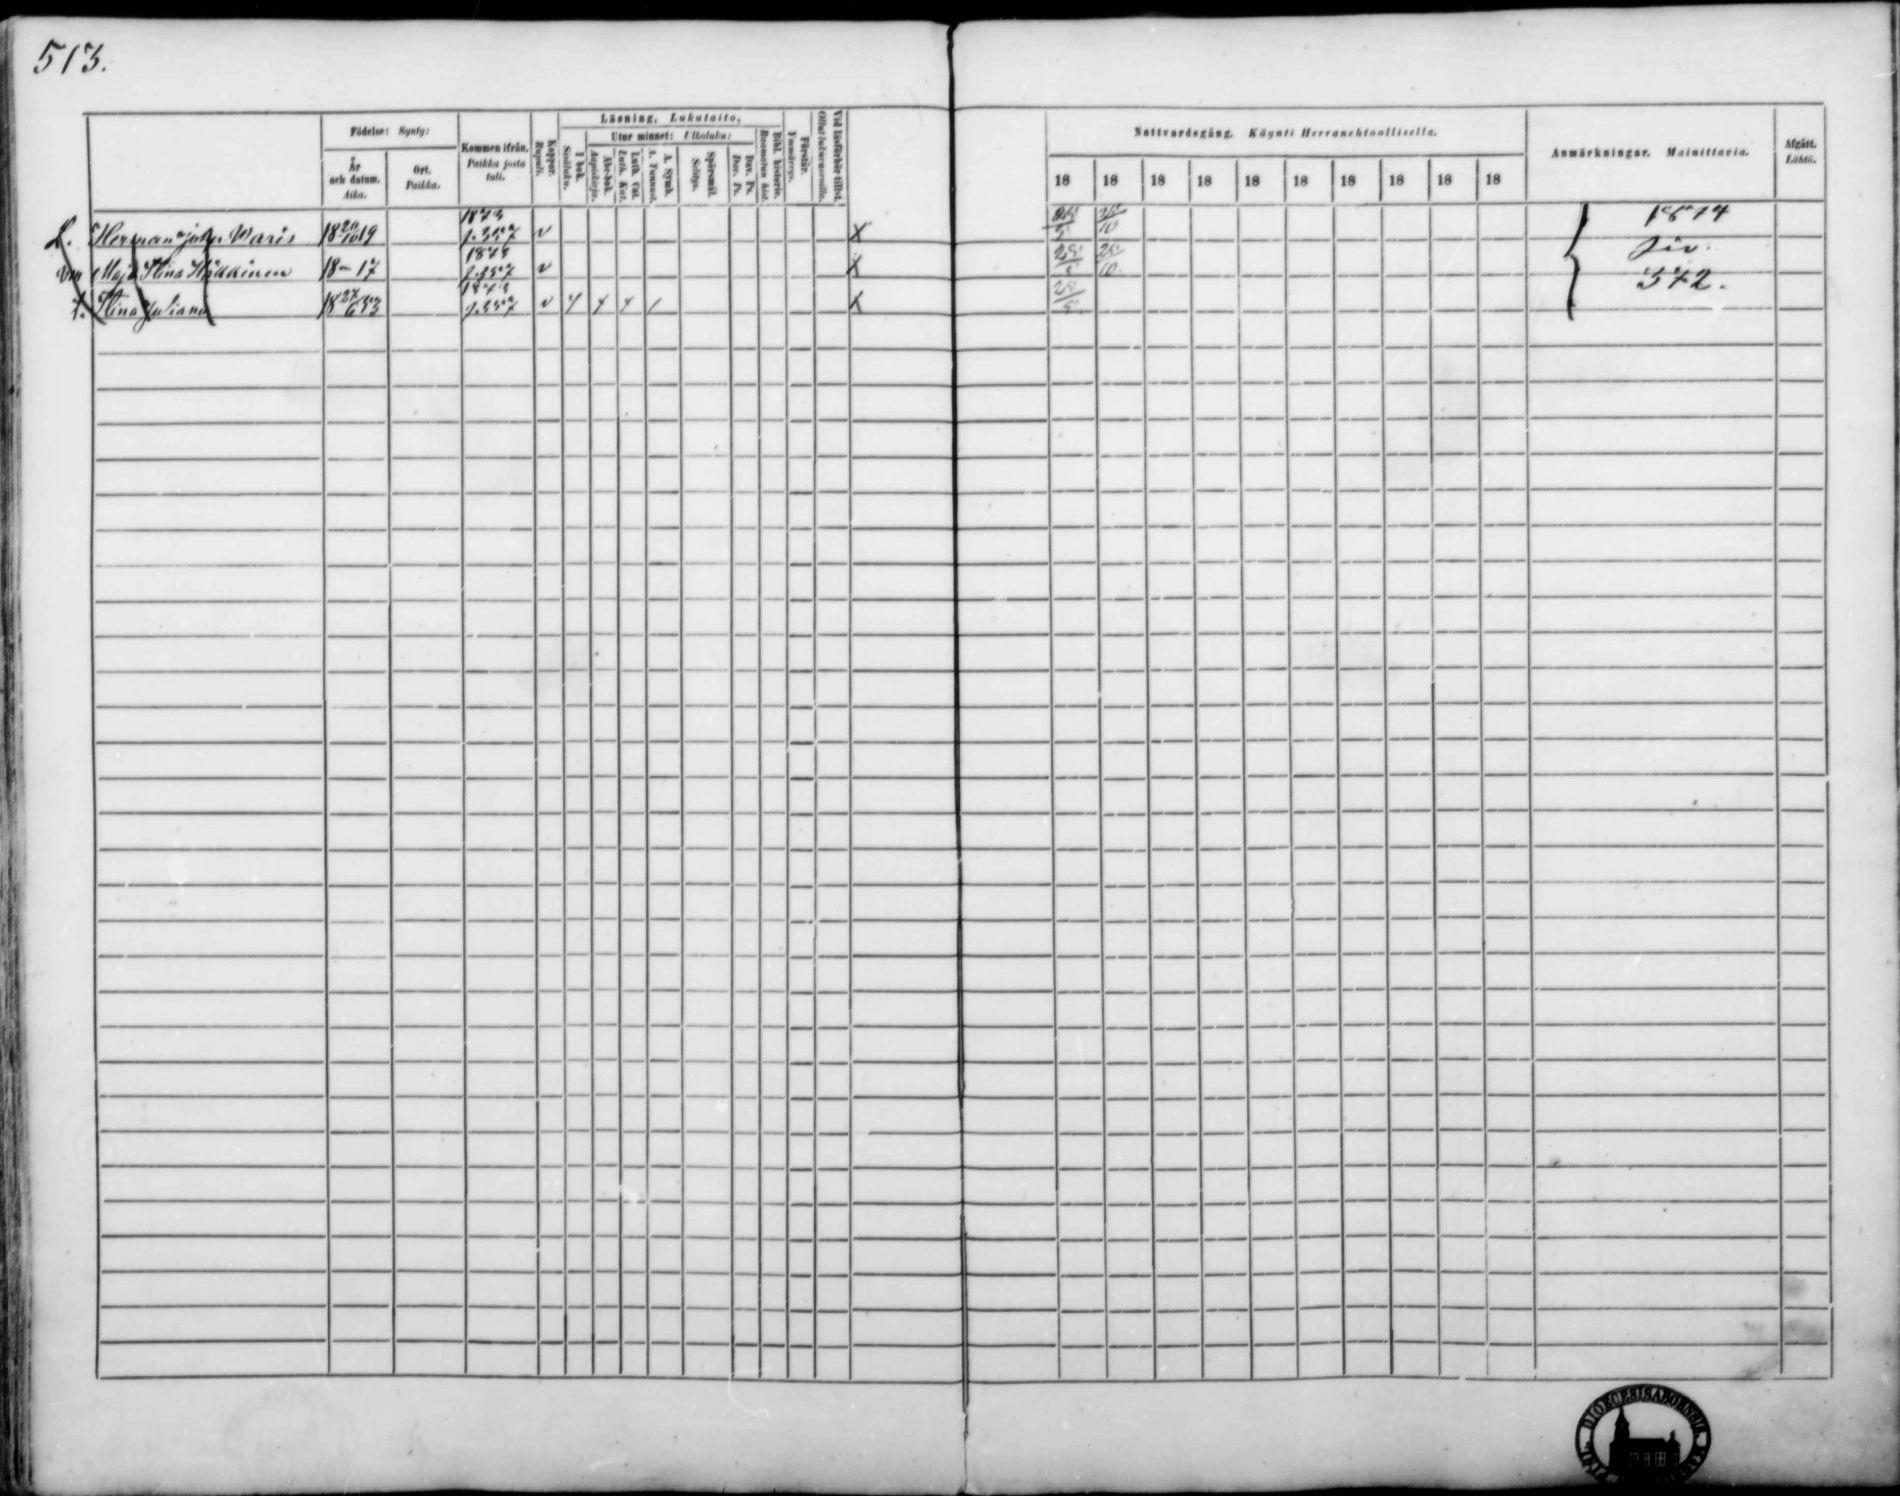 513.
Födelse: Synty:
År och datum. Aika.
Ort. Paikka.
Kommen ifrån. Paikka josta tuli.
Koppor. Rupuli.
Läsning, Lukutaito,
I bok. Sisäluku.
Utur minnet: Ulkoluku:
Abc-bok. Aapiskirja.
Luth. Cat. Luth. Kat.
A. Symb. A. Tunnust.
Spörsmål. Selitys.
Dav. Ps. Dav. Ps.
Bibl. historie. Raamatun hist.
Förstår. Ymmärrys.
Vid läsförhör tillst. Ollut lukuvuoroilla.
Nattvardsgång. Käynti Herranehtoollisella.
18 18 18 18 18 18 18 18 18 18
Anmärkningar. Mainittavia.
Afgått. Lähtö.
Herman Joh. Waris 18 20/10 19 1873 p. 357 v X 25/5 25/10
Maja Stina Häkkinen 18 – 17 1873 p. 357 v X 25/5 25/10
Stina Juliana 18 27/6 53 1873 p. 357 v X 25/5
1874
Siv.
372.